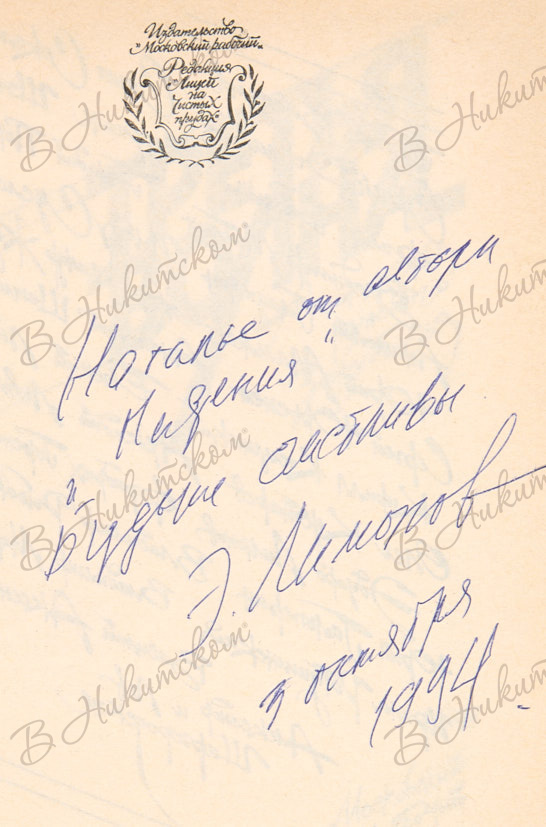 Издательство
"Московский рабочий"
Редакция
"Лицей
на
Чистых
прудах"
Наталье от автора
Будьте счастливы
Э. Лимонов
3 октября
1994
В Никитском
В Никитском
В Никитском
В Никитском
В Никитском
В Никитском
В Никитском
В Никитском